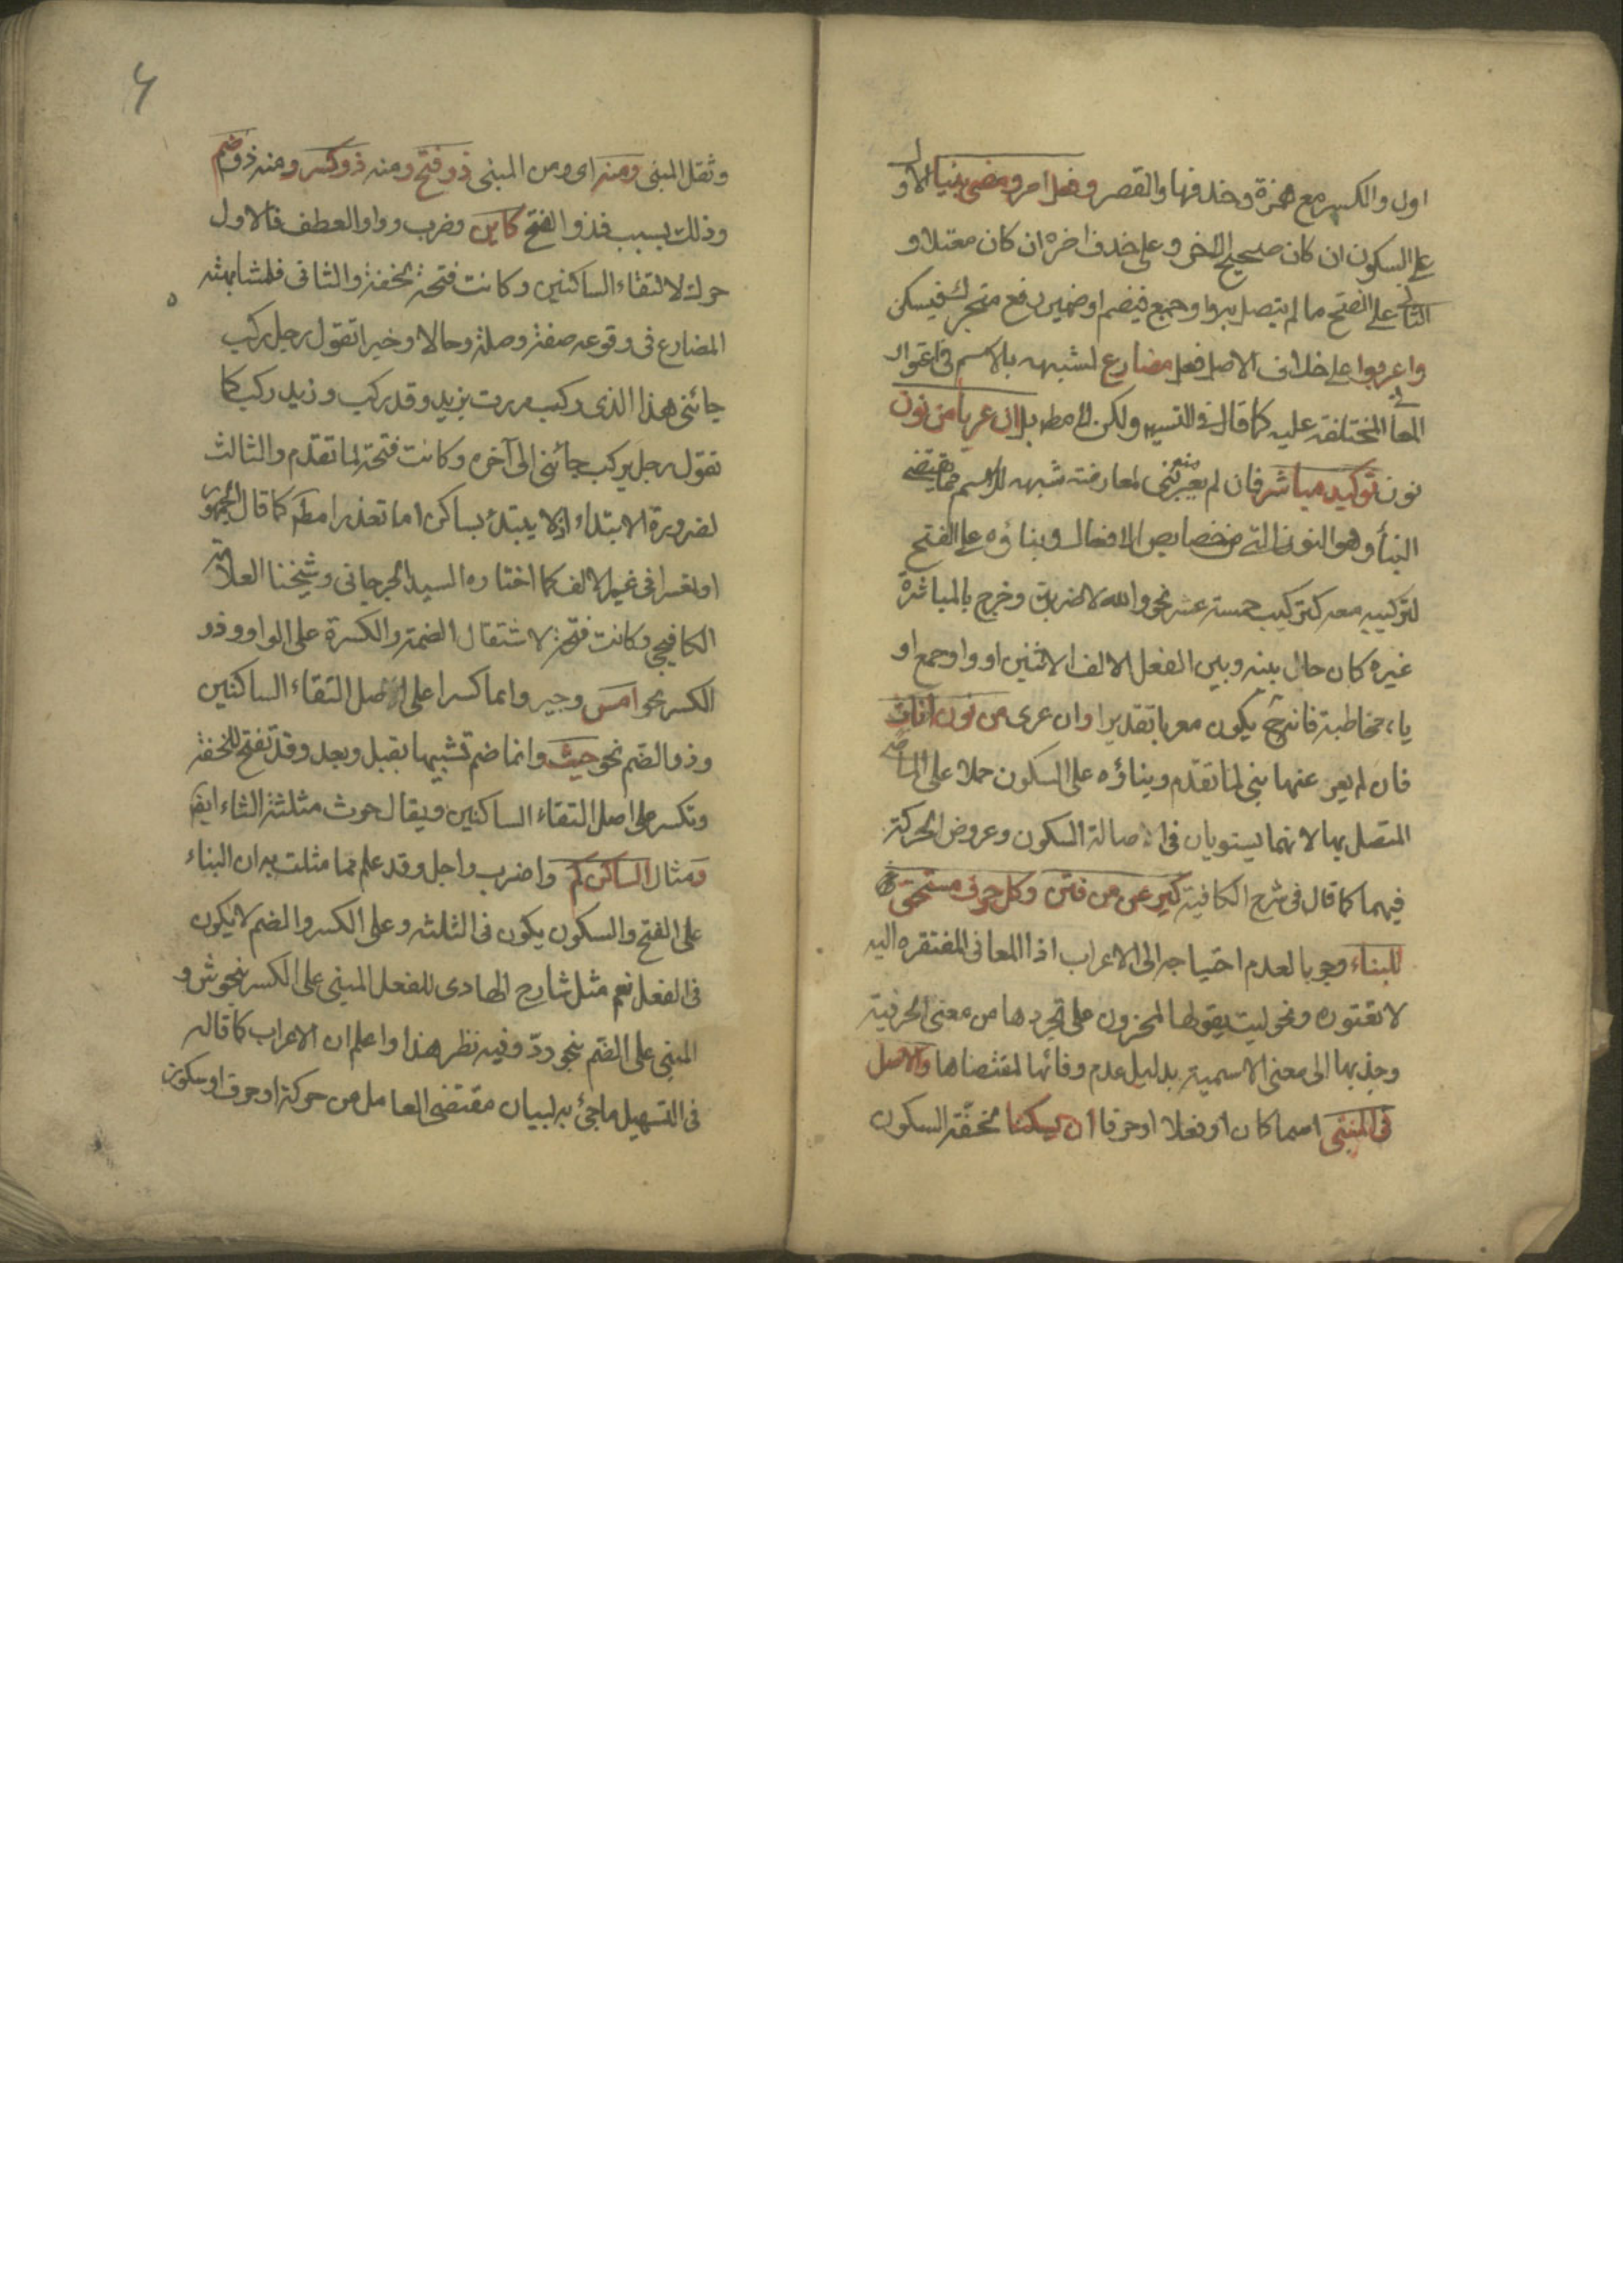 اول والكسر مع همزة وحذفها والقصر وفعل امر ومضى بنيا الاول
على السكون ان كان صحيح الاخر وعلى حذف اخره ان كان معتلا و
الثانى على الفتح ما لم يتصل به واو جمع فيضم او ضمير رفع متحرك فيسكن
واعربوا على خلاف الاصل فعل مضارع لشبهه بالاسم فى اعتوار
المعانى المختلفة عليه كما قال فى التسهيل ولكن لا مط بل ان عريا من نون
نون توكيد مباشر فان لم يعر منه بنى لمعارضة شبهه للاسم بما يقتضى
البنأ وهو النون التى من خصايص الافعال وبناؤه على الفتح
لتركيبه معه كتركيب خمسة عشر نحو والله لاضربن وخرج بالمباشرة
غيره كان حال بينه وبين الفعل الالف الاثنين او واو جمع او
ياء مخاطبة فانه ح يكون معربا تقديرا وان عرى من نون اناث
فان لم يعر عنها بنى لما تقدم وبناؤه على السكون حملا على الماضى
المتصل بها لانهما يستويان فى اصالة السكون وعروض الحركة
فيهما كما قال فى شرح الكافية كيرعن من فتن وكل حرف مستحق
للبناء وجوبا لعدم احتياجه الى الاعراب اذ المعانى المفتقره اليه
لا تعتوره ونحو ليت يقولها المحزون على تجردها من معنى الحرفية
وجذبها الى معنى الاسمية بدليل عدم وفائها لمقتضاها والاصل
فى المبنى اسما كان او فعلا او حرفا ان يسكنا لخفة السكون
وثقل المبنى ومنه اى ومن المبنى ذو فتح ومنه ذو كسر ومنه ذو ضم
وذلك بسبب فذو الفتح كاين وضرب وواو العطف فالاول
حرك لالتقاء الساكنين وكانت فتحة لخفة والثانى فلمشابهته
المضارع فى وقوعه صفة وصلة وحالا وخبرا تقول رجل ركب
جائنى هذا الذى ركب مررت بزيد وقد ركب وزيد ركب كما
تقول رجل يركب جائنى الى آخره وكانت فتحة لما تقدم والثالث
لضرورة الابتداء اذ لا يبتدئ بساكن اما تعذرا مط كما قال الجمهور
او تعسرا فى غير الالف كما اختاره السيد الجرجانى وشيخنا العلامة
الكافيجى وكانت فتحة لاستثقال الضمة والكسرة على الواو وذو
الكسر نحو امس وجير وانما كسرا على اصل التقاء الساكنين
وذو الضم نحو حيث وانما ضم تشبيها بقبل وبعد وقد تفتح للخفة
وتكسر على اصل التقاء الساكنين ويقال حوث مثلثة الثاء ايض
ومثال الساكن كم واضرب واجل وقد علم مما مثلت به ان البناء
على الفتح والسكون يكون فى الثلثة وعلى الكسر والضم لا يكون
فى الفعل نعم مثل شارح الهادى للفعل المبنى على الكسر بنحو ش و
المبنى على الضم بنحو ردّ وفيه نظر هذا واعلم ان الاعراب كما قاله
فى التسهيل ما جئ به لبيان مقتضى العامل من حركة او حرف او سكون